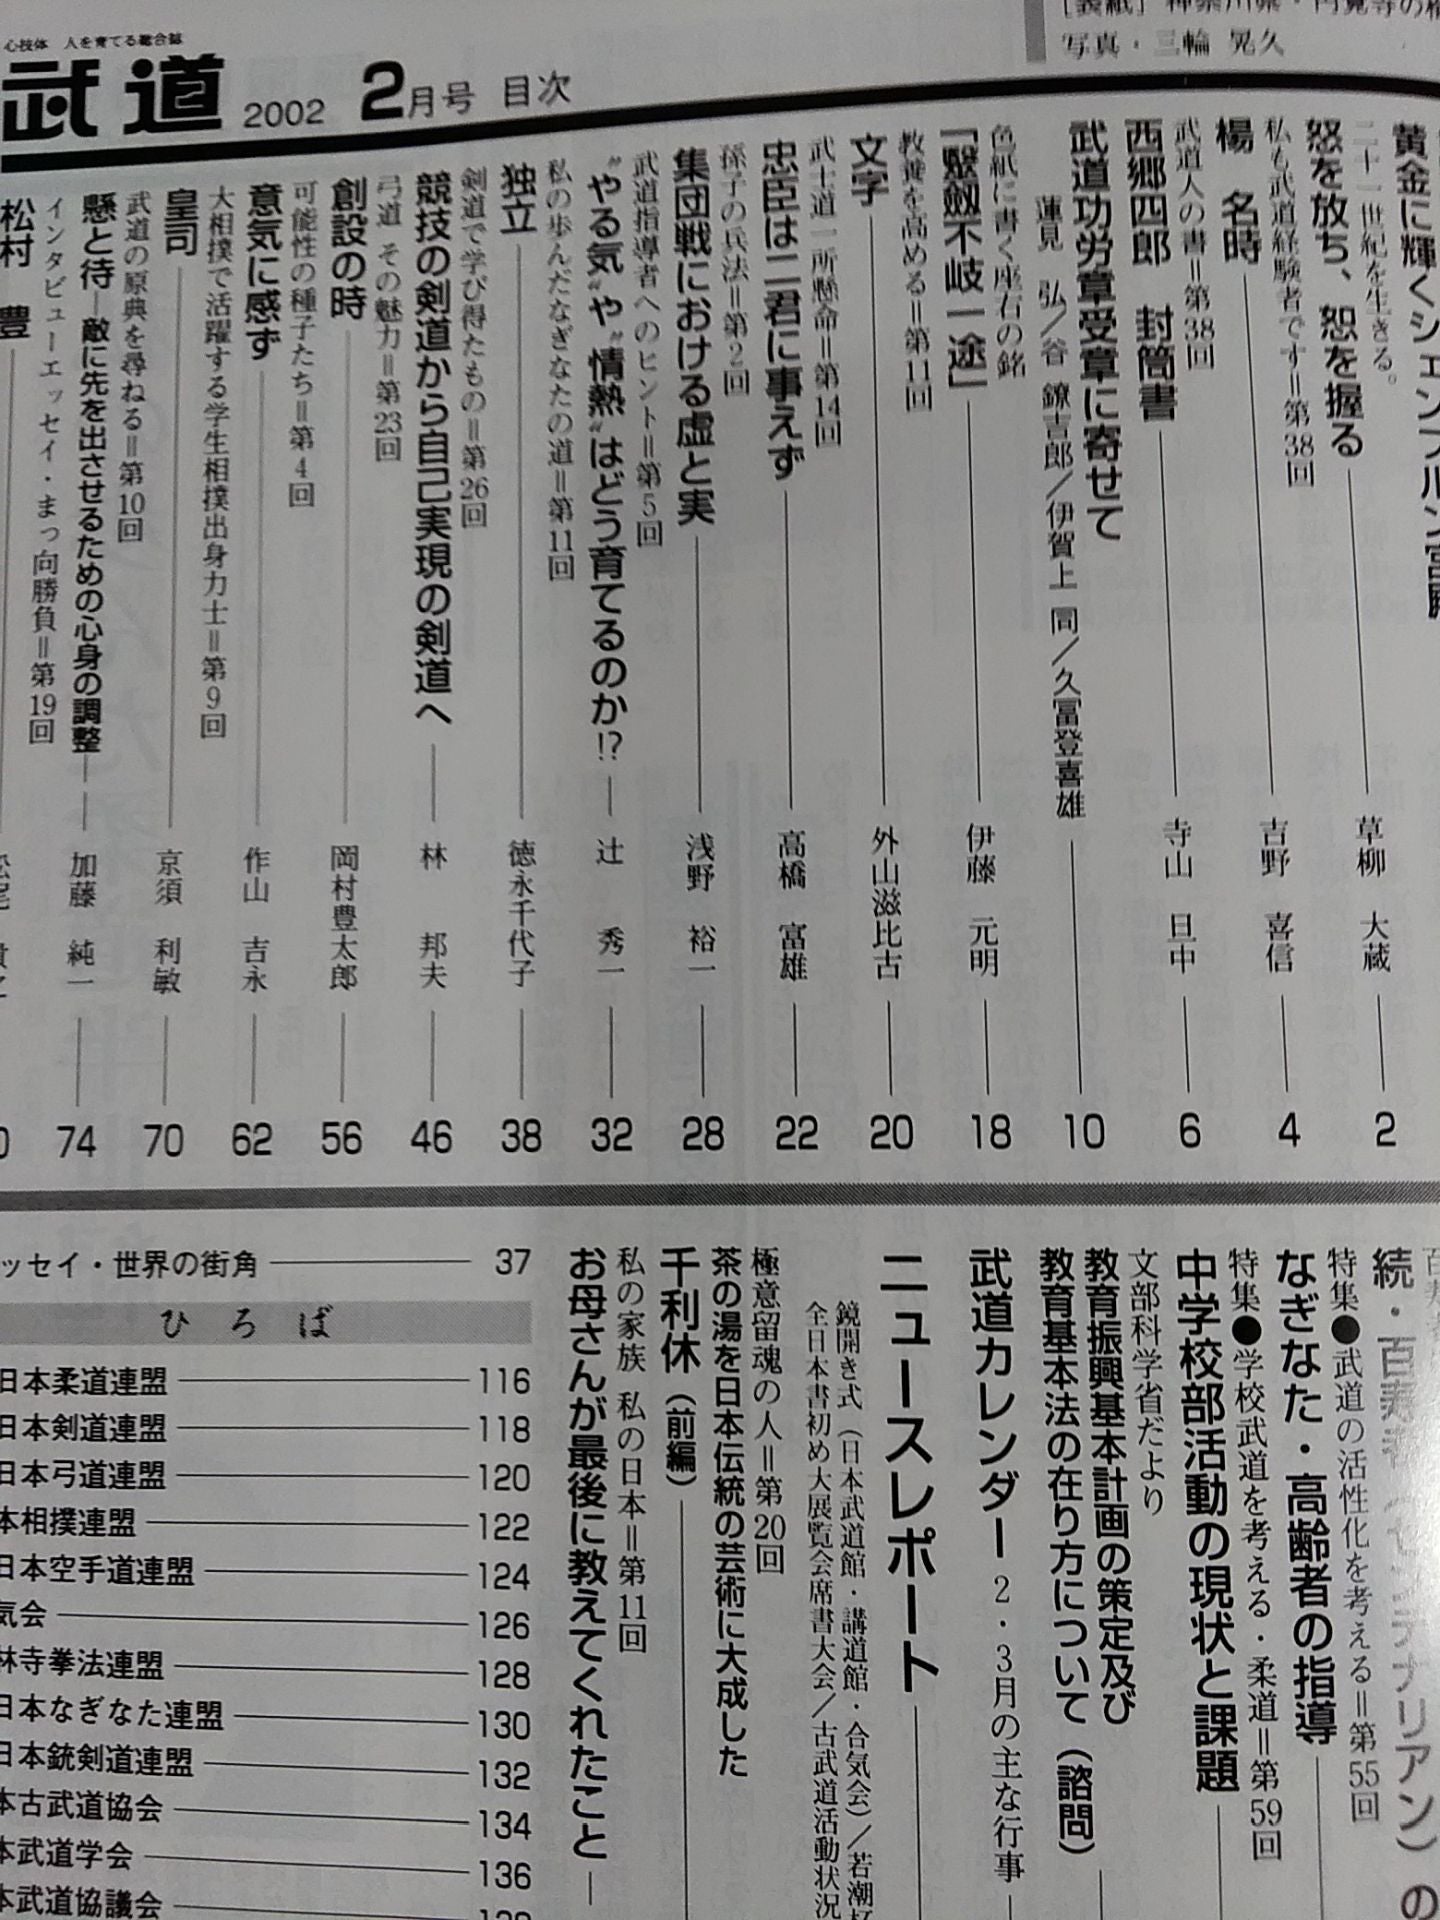 心技体 人を育てる総合誌
武道 2002 2月号 目次
写真・三輪 晃久
黄金に輝くシェーンブルン宮殿
二十一世紀を生きる。
怒を放ち、恕を握る 草柳 大蔵 2
私も武道経験者です＝第38回
楊 名時 吉野 喜信 4
武道人の書＝第38回
西郷四郎 封筒書 寺山 旦中 6
武道功労章受章に寄せて
蓮見 弘／谷 鐐吉郎／伊賀上 同／久冨登喜雄 10
色紙に書く座右の銘
「毉劔不岐一途」 伊藤 元明 18
教養を高める＝第11回
文字 外山滋比古 20
武士道一所懸命＝第14回
忠臣は二君に事えず 高橋 富雄 22
孫子の兵法＝第2回
集団戦における虚と実 浅野 裕一 28
武道指導者へのヒント＝第5回
“やる気”や“情熱”はどう育てるのか!? 辻 秀一 32
私の歩んだなぎなたの道＝第11回
独立 徳永千代子 38
剣道で学び得たもの＝第26回
競技の剣道から自己実現の剣道へ 林 邦夫 46
弓道 その魅力＝第23回
創設の時 岡村豊太郎 56
可能性の種子たち＝第4回
意気に感ず 作山 吉永 62
大相撲で活躍する学生相撲出身力士＝第9回
皇司 京須 利敏 70
武道の原典を尋ねる＝第10回
懸と待―敵に先を出させるための心身の調整 加藤 純一 74
インタビューエッセイ・まっ向勝負＝第19回
松村 豊
続・百寿者（センテナリアン）の
特集●武道の活性化を考える＝第55回
なぎなた・高齢者の指導
特集●学校武道を考える・柔道＝第59回
中学校部活動の現状と課題
文部科学省だより
教育振興基本計画の策定及び
教育基本法の在り方について（諮問）
武道カレンダー 2・3月の主な行事
ニュースレポート
鏡開き式（日本武道館・講道館・合気会）／若潮杯
全日本書初め大展覧会席書大会／古武道活動状況
極意留魂の人＝第20回
茶の湯を日本伝統の芸術に大成した
千利休（前編）
私の家族 私の日本＝第11回
お母さんが最後に教えてくれたこと
ッセイ・世界の街角 37
ひろば
日本柔道連盟 116
日本剣道連盟 118
日本弓道連盟 120
本相撲連盟 122
日本空手道連盟 124
気会 126
林寺拳法連盟 128
日本なぎなた連盟 130
日本銃剣道連盟 132
本古武道協会 134
本武道学会 136
本武道協議会